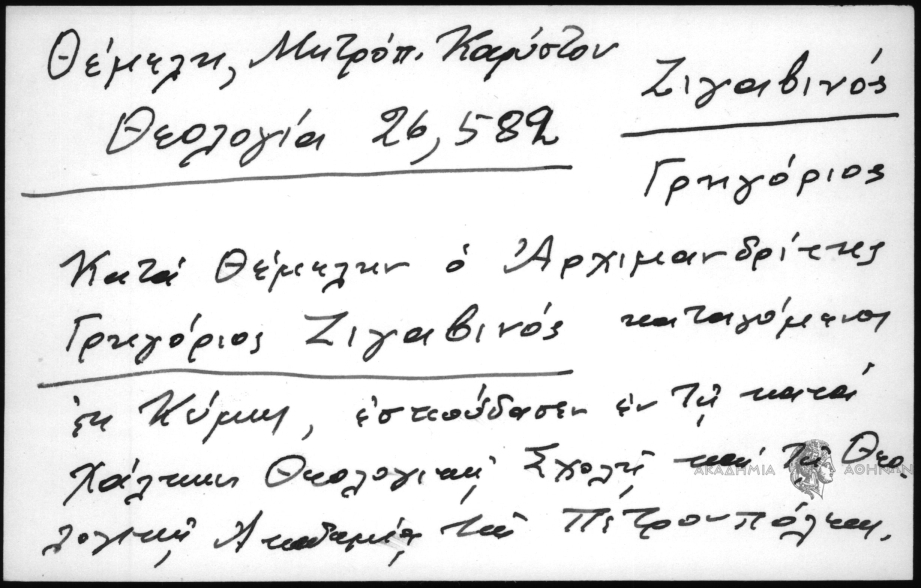 Θέμελη, Μητρόπ. Καρύστου
Θεολογία 26, 582
Ζιγαβινός
Γρηγόριος
Κατά Θέμελην ὁ Ἀρχιμανδρίτης
Γρηγόριος Ζιγαβινός καταγόμενος
ἐκ Κύμης, ἐσπούδασεν ἐν τῇ κατά
Χάλκην Θεολογικῇ Σχολῇ καί τῇ Θεο-
λογικῇ Ἀκαδημίᾳ τῆς Πετρουπόλεως.
ΑΚΑΔΗΜΙΑ ΑΘΗΝΩΝ